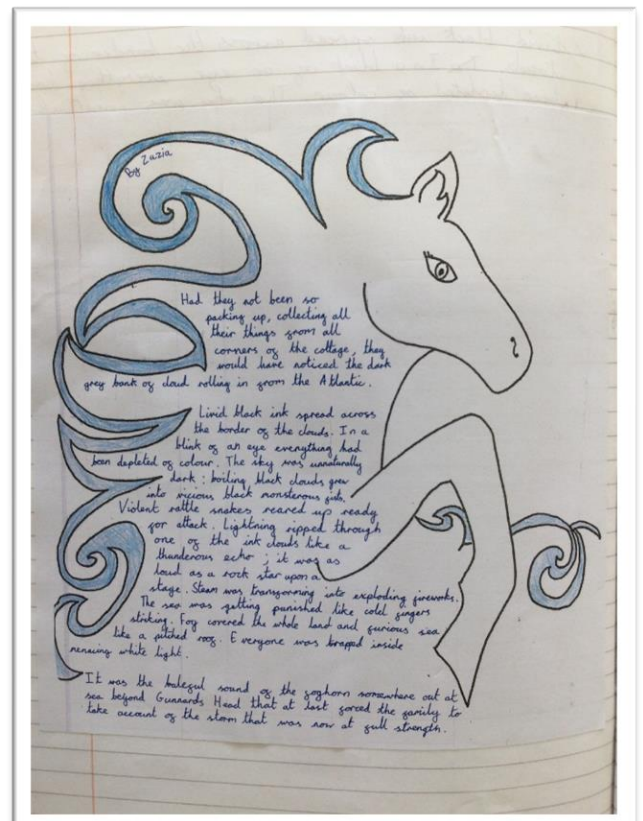 By Zazia
Had they not been so
packing up, collecting all
their things from all
corners of the cottage, they
would have noticed the dark
grey bank of cloud rolling in from the Atlantic.
Livid black ink spread across
the border of the clouds. In a
blink of an eye everything had
been depleted of colour. The sky was unnaturally
dark : boiling, black clouds grew
into vicious black monsterous
Violent rattle snakes reared up ready
for attack. Lightning ripped through
one of the ink clouds like a
thunderous echo ; it was as
loud as a rock star upon a
stage. Steam was transforming into exploding fireworks.
The sea was getting punished like cold fingers
striking. Fog covered the whole land and furious sea
like a pitched roof. Everyone was trapped inside
white light.
It was the baleful sound of the foghorn somewhere out at
sea beyond Gunnards Head that at last forced the family to
take account of the storm that was now at full strength.